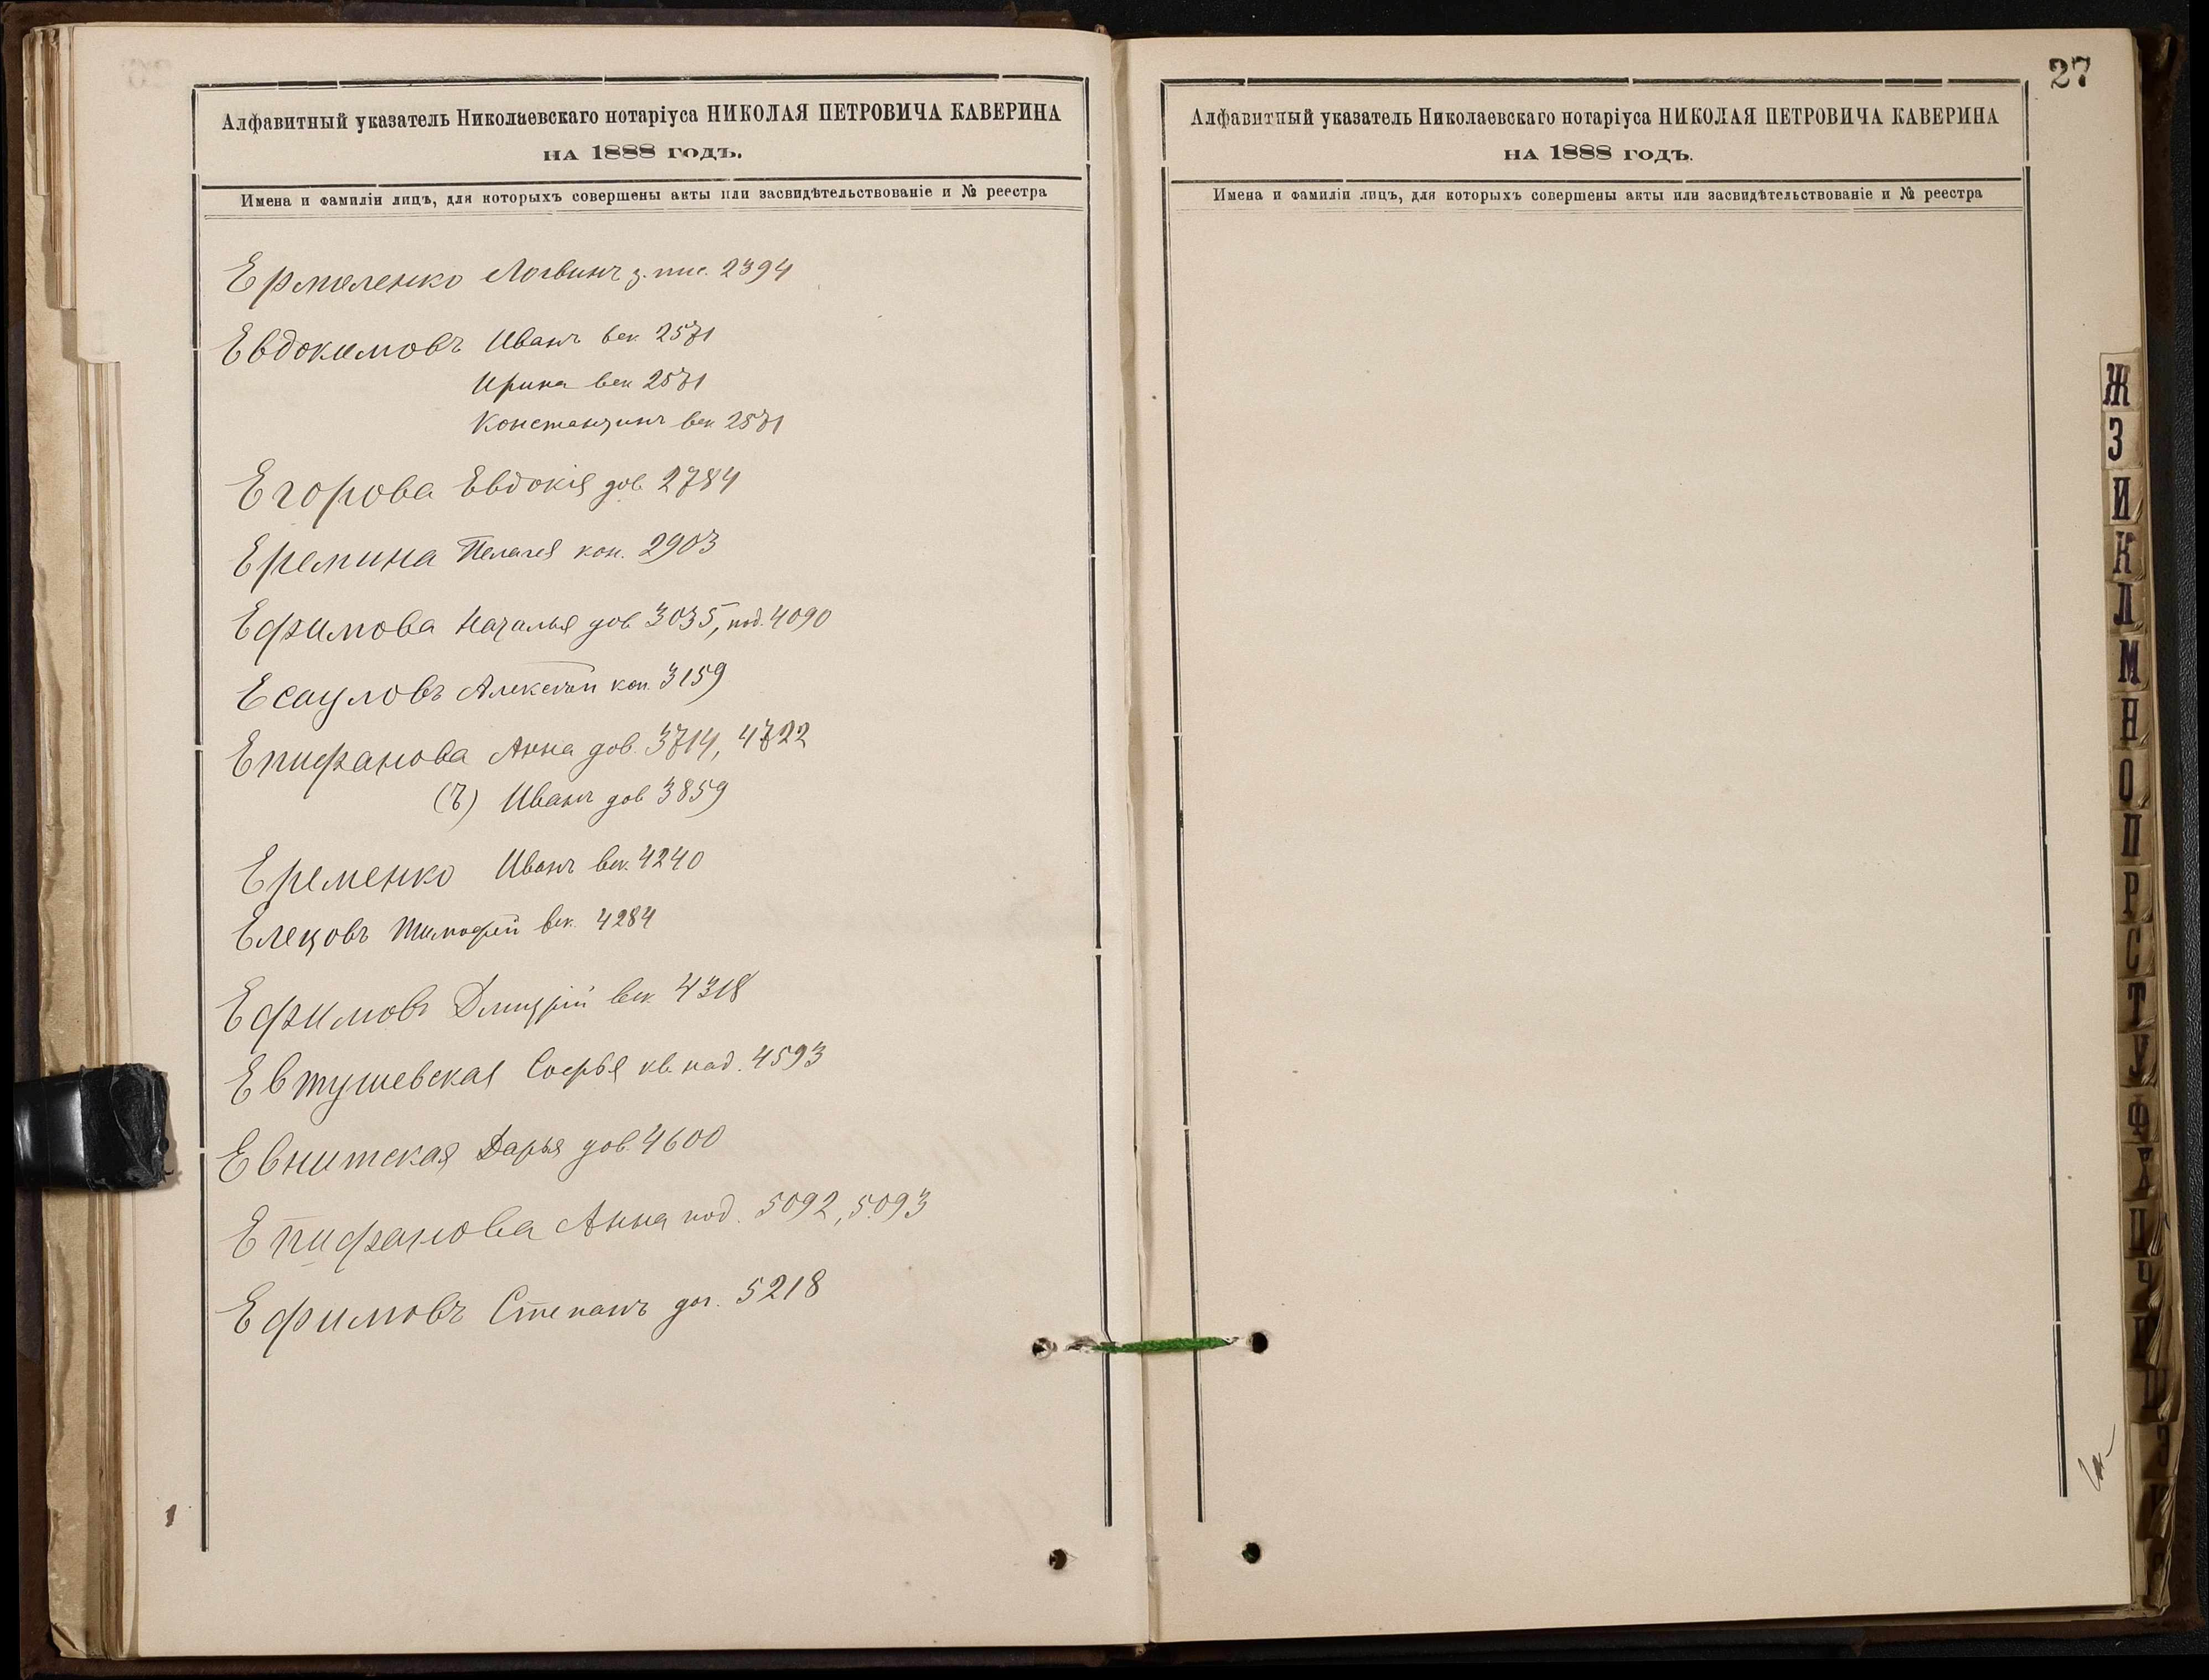 Алфавитный указатель Николаевскаго нотаріуса НИКОЛАЯ ПЕТРОВИЧА КАВЕРИНА
НА 1888 ГОДЪ.
Имена и фамиліи лицъ, для которыхъ совершены акты или засвидѣтельствованіе и № реестра
Ермоленко Логвинъ з. пис. 2394
Евдокимовъ Иванъ век 2571
Ирина век 2571
Константинъ век 2571
Егорова Евдокія дов 2784
Еремина Пелагея коп. 2903
Ефимова Наталья дов 3035, под. 4090
Есауловъ Алексѣй коп. 3159
Епифанова Анна дов. 3714, 4722
(ъ) Иванъ дов 3859
Еременко Иванъ век. 4240
Елецовъ Тимофей век. 4284
Ефимовъ Дмитрій век 4318
Евтушевская Софья кв. над. 4593
Евнитская Дарья дов. 4600
Епифанова Анна под. 5092, 5093
Ефимовъ Степанъ дог. 5218
27
Алфавитный указатель Николаевскаго нотаріуса НИКОЛАЯ ПЕТРОВИЧА КАВЕРИНА
НА 1888 ГОДЪ.
Имена и фамиліи лицъ, для которыхъ совершены акты или засвидѣтельствованіе и № реестра
Ж
З
И
К
Л
М
Н
О
П
Р
С
Т
У
Ф
Х
Ц
Ч